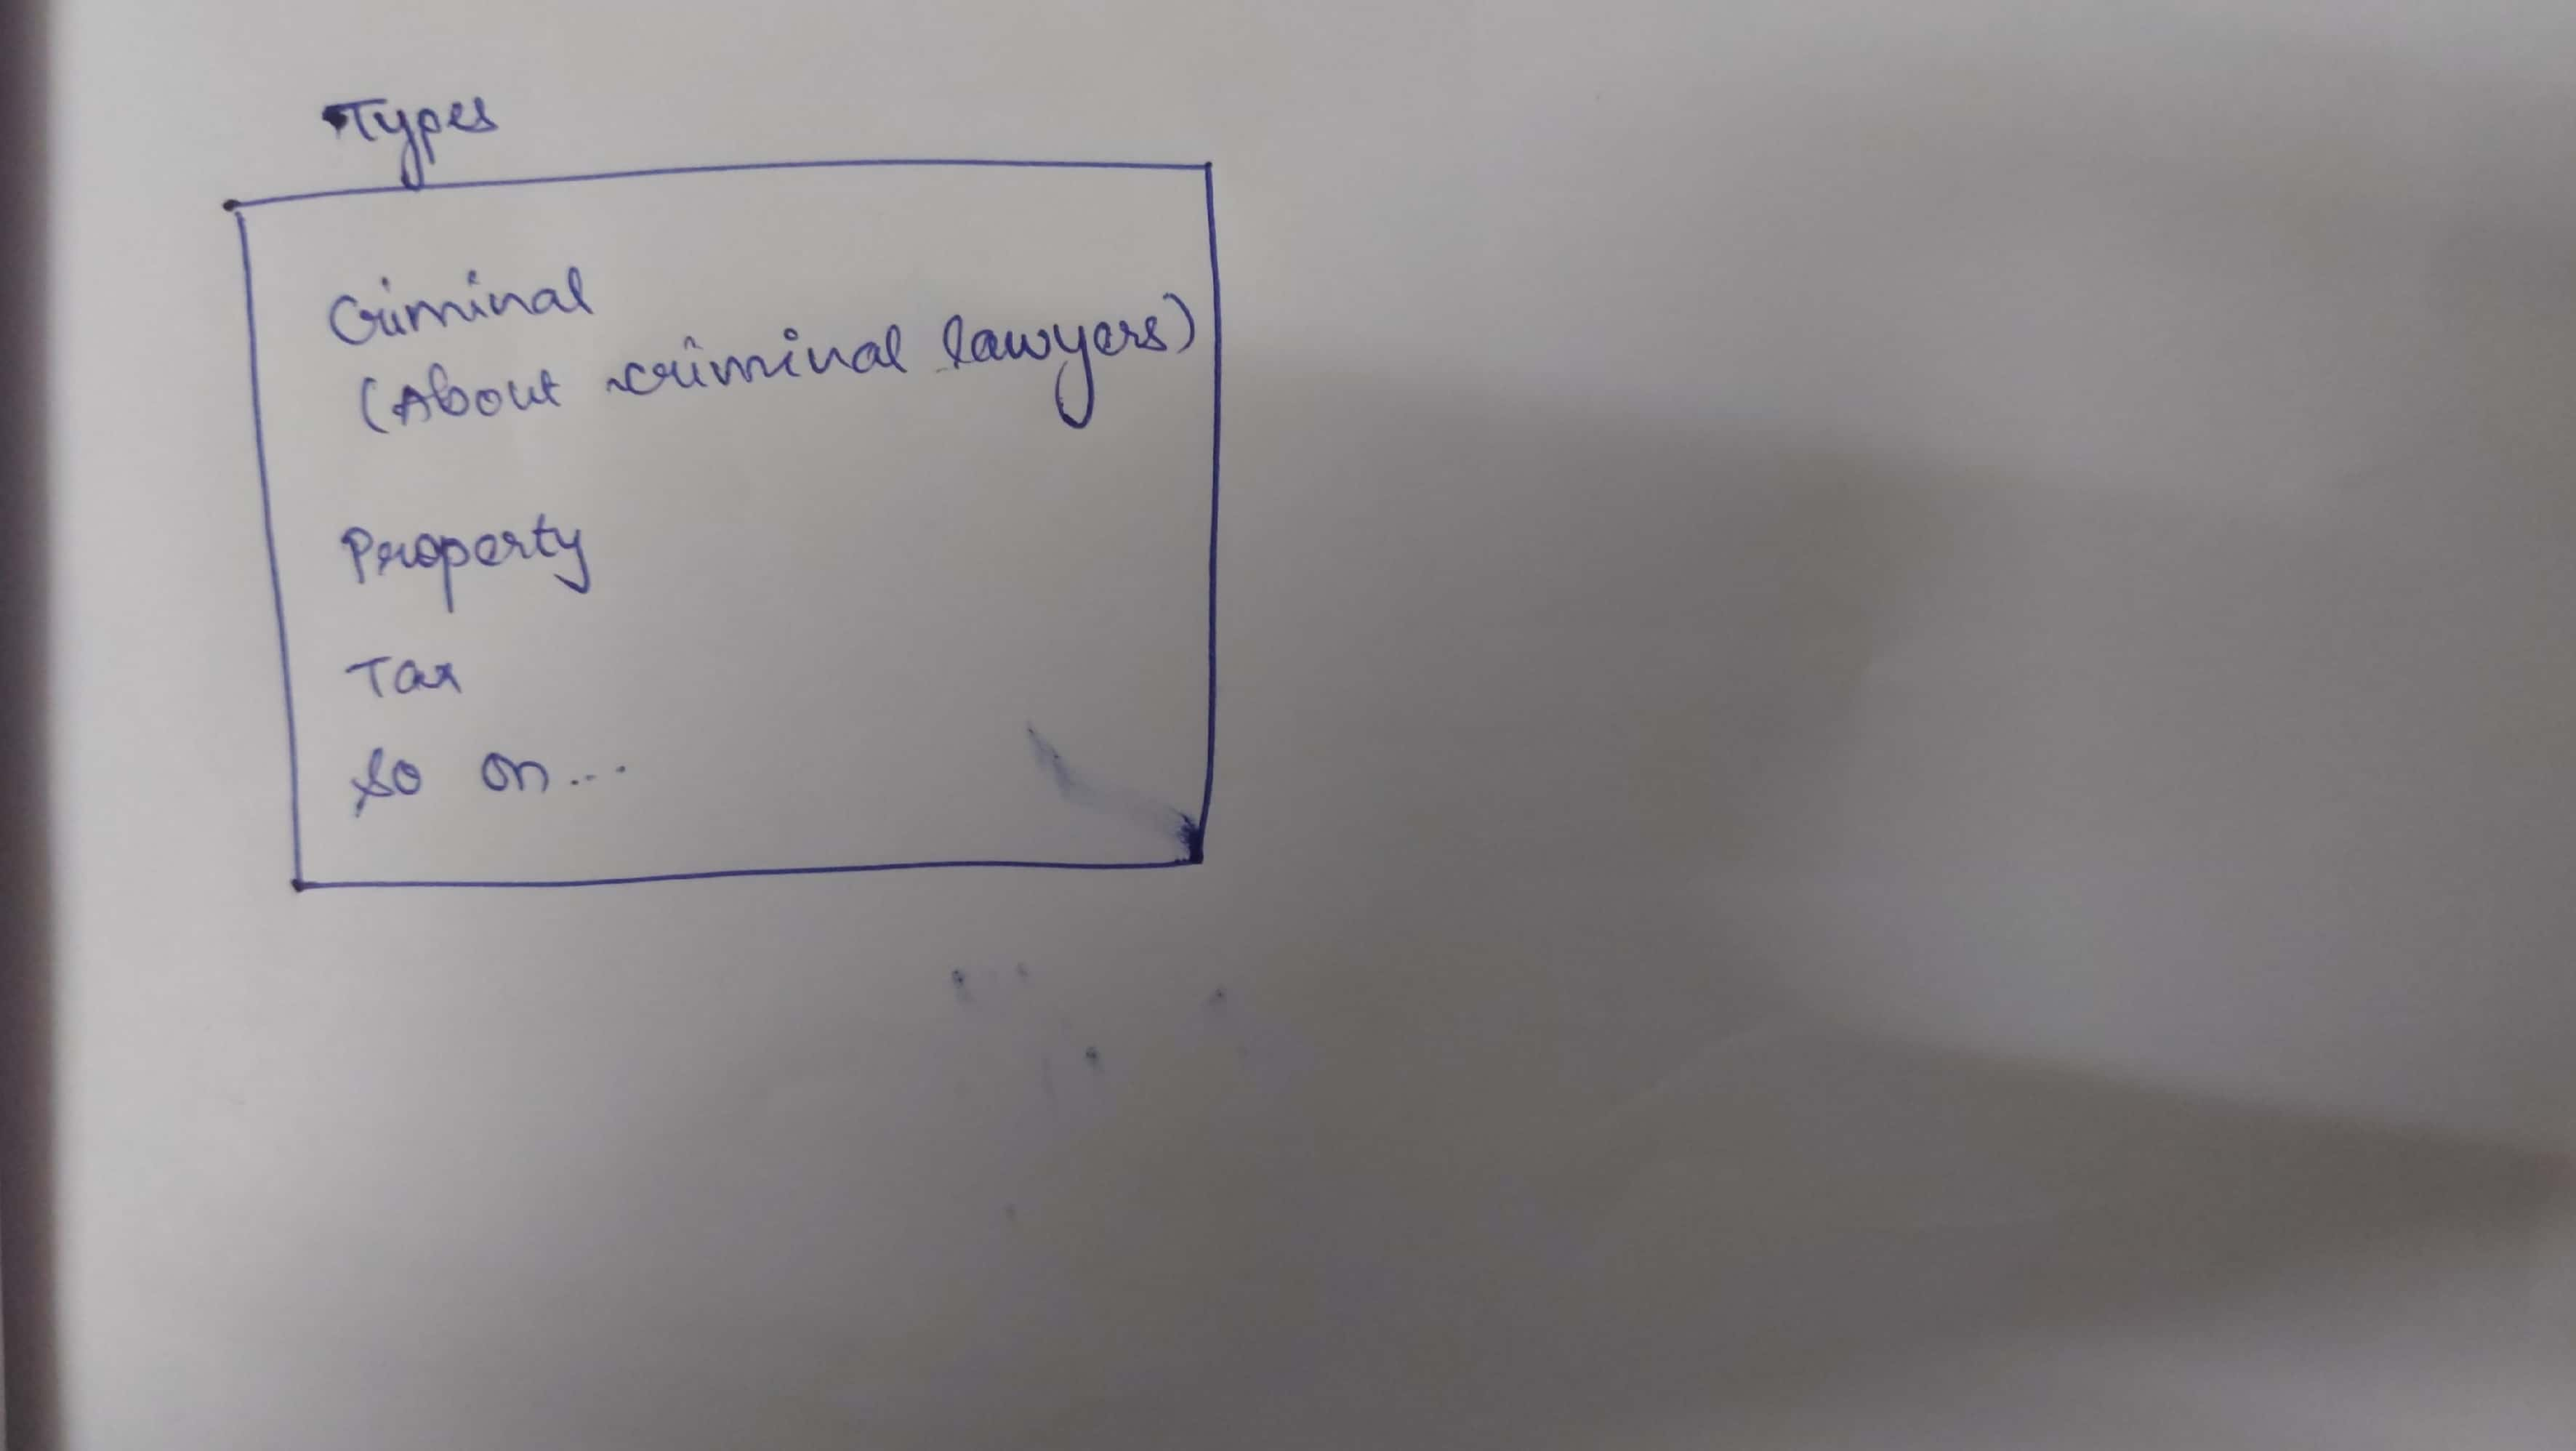 Types
Criminal
(About criminal lawyers)
Property
Tax
so on...